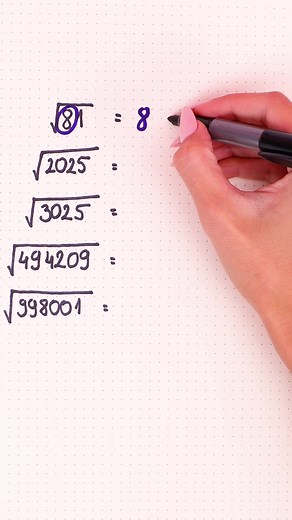 √81 = 8
√2025 =
√3025 =
√494209 =
√998001 =